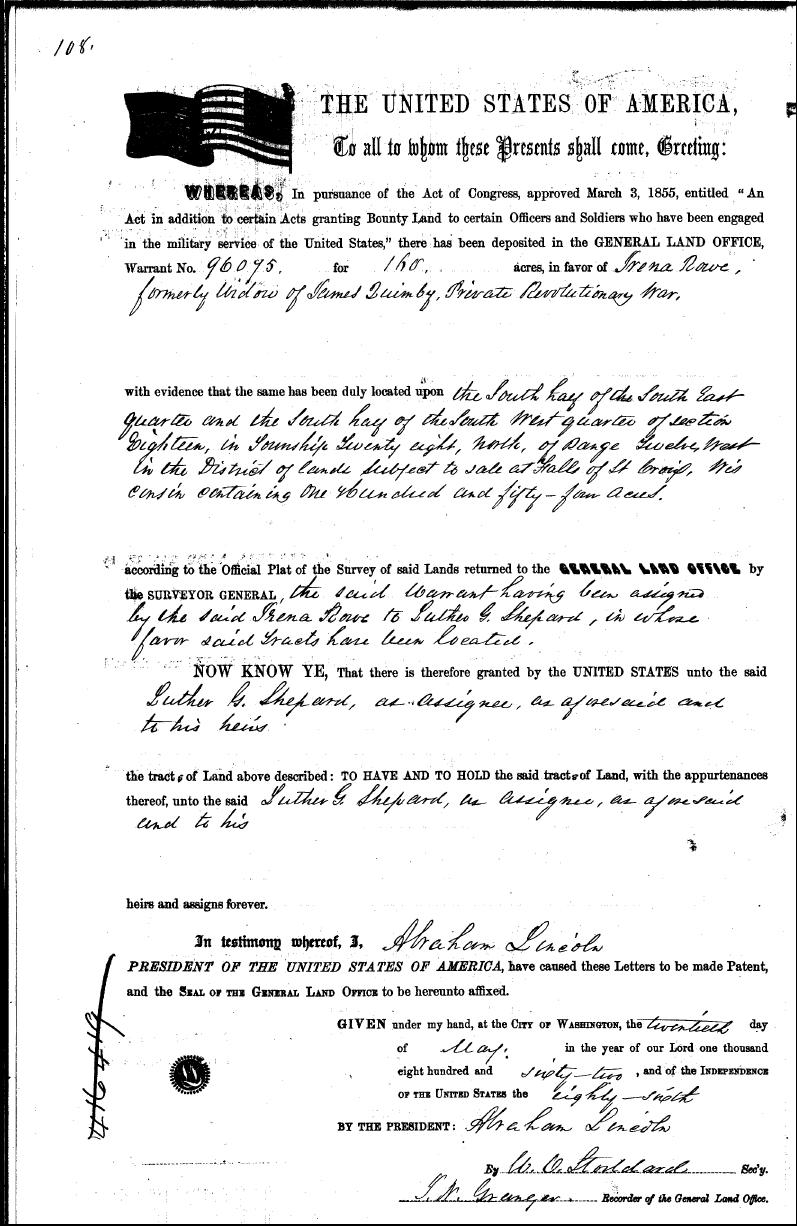 108.
THE UNITED STATES OF AMERICA,
To all to whom these Presents shall come, Greeting:
WHEREAS, In pursuance of the Act of Congress, approved March 3, 1855, entitled "An
Act in addition to certain Acts granting Bounty Land to certain Officers and Soldiers who have been engaged
in the military service of the United States," there has been deposited in the GENERAL LAND OFFICE,
Warrant No. 96075. for 160. acres, in favor of Irena Rowe,
formerly Widow of James Quimby, Private Revolutionary War.
with evidence that the same has been duly located upon the South half of the South East
quarter and the South half of the South West quarter of section
Eighteen, in Township Twenty eight, North, of Range Twelve, West
in the District of lands subject to sale at Falls of St Croix, Wis
consin containing One Hundred and fifty-four Acres.
according to the Official Plat of the Survey of said Lands returned to the GENERAL LAND OFFICE by
the SURVEYOR GENERAL, the said Warrant having been assigned
by the said Irena Rowe to Luther G. Shepard, in whose
favor said tracts have been located.
NOW KNOW YE, That there is therefore granted by the UNITED STATES unto the said
Luther G. Shepard, as assignee, as aforesaid and
to his heirs
the tracts of Land above described: TO HAVE AND TO HOLD the said tracts of Land, with the appurtenances
thereof, unto the said Luther G. Shepard, as assignee, as aforesaid
and to his
heirs and assigns forever.
In testimony whereof, I, Abraham Lincoln
PRESIDENT OF THE UNITED STATES OF AMERICA, have caused these Letters to be made Patent,
and the SEAL OF THE GENERAL LAND OFFICE to be hereunto affixed.
GIVEN under my hand, at the CITY OF WASHINGTON, the twentieth day
of May. in the year of our Lord one thousand
eight hundred and sixty-two, and of the INDEPENDENCE
OF THE UNITED STATES the eighty-sixth
BY THE PRESIDENT: Abraham Lincoln
By W. O. Stoddard Sec'y.
Granger Recorder of the General Land Office.
416419